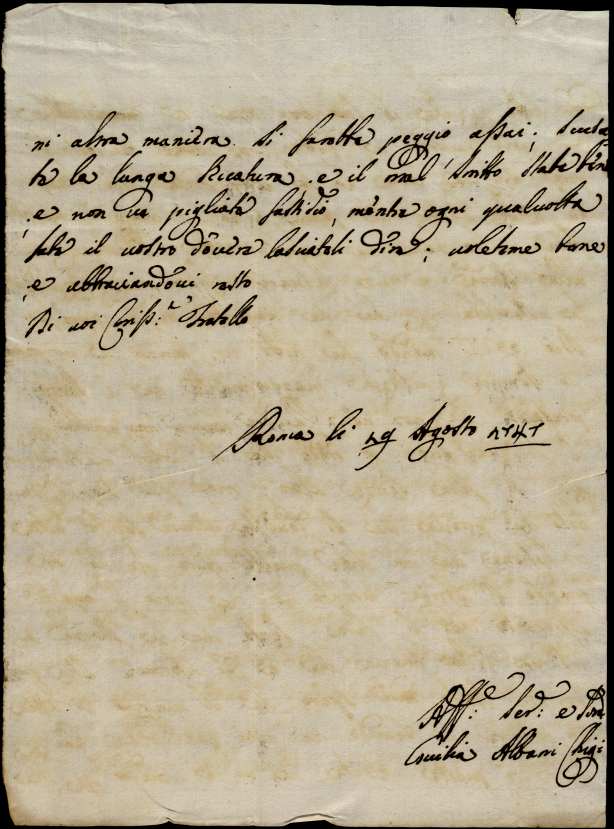 ni altra maniera si farebbe peggio assai; scusa
te la lunga seccatura, e il mal scritto state bene
e non vi pigliate fastidio, mentre ogni qualvolta
fate il vostro dovere lasciateli dire; voletemi bene
e abbracciandovi resto
Di voi Cariss:º Fratello
Roma li 29 Agosto 1747
Aff:ª Ser: e
Cecilia Albani Chigi